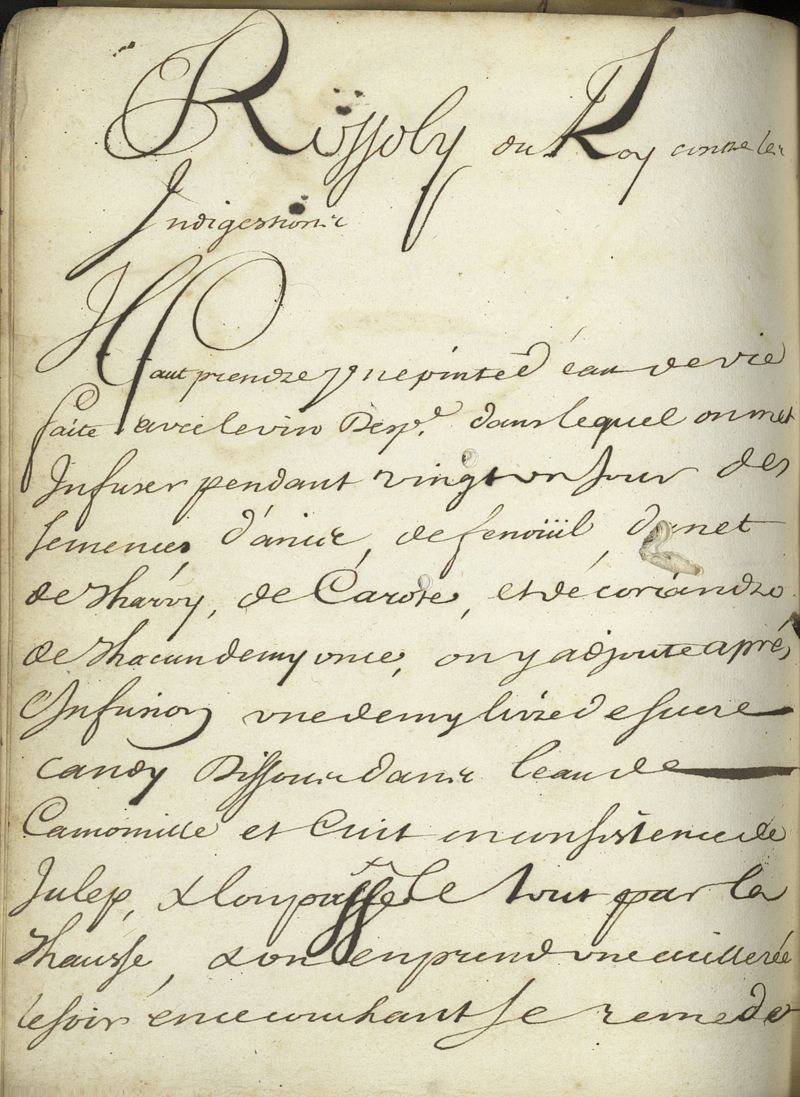 Rossoly du Roy contre les
Indigestions
Il faut prendre une pinte d'eau de vie
faite avec le vin Desp.e dans lequel on met
Infuser pendant vingt un Jour des
semences d'anis, de fenoüil, danet
de Charvy, de Carote, et de coriandre
de Chacun demy once, on y adjoute aprés
L'Infusion une demy livre de sucre
candy Dissous dans leau de
Camomille et Cuit en consistence de
Julep, & lon passe le tout par la
Chausse, & on en prend une cuillerée
le soir en ce couchant se remede